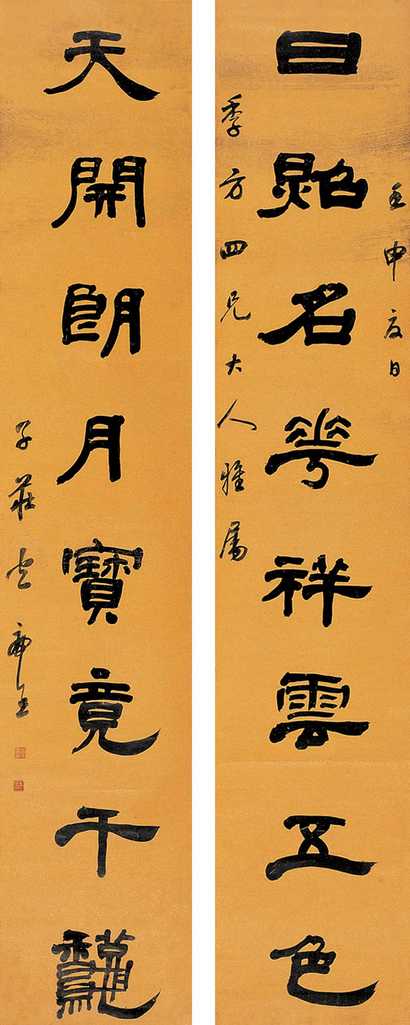 壬申夏日
日照名華祥雲五色
季方四兄大人雅屬
天開朗月寶竟千龝
子莊